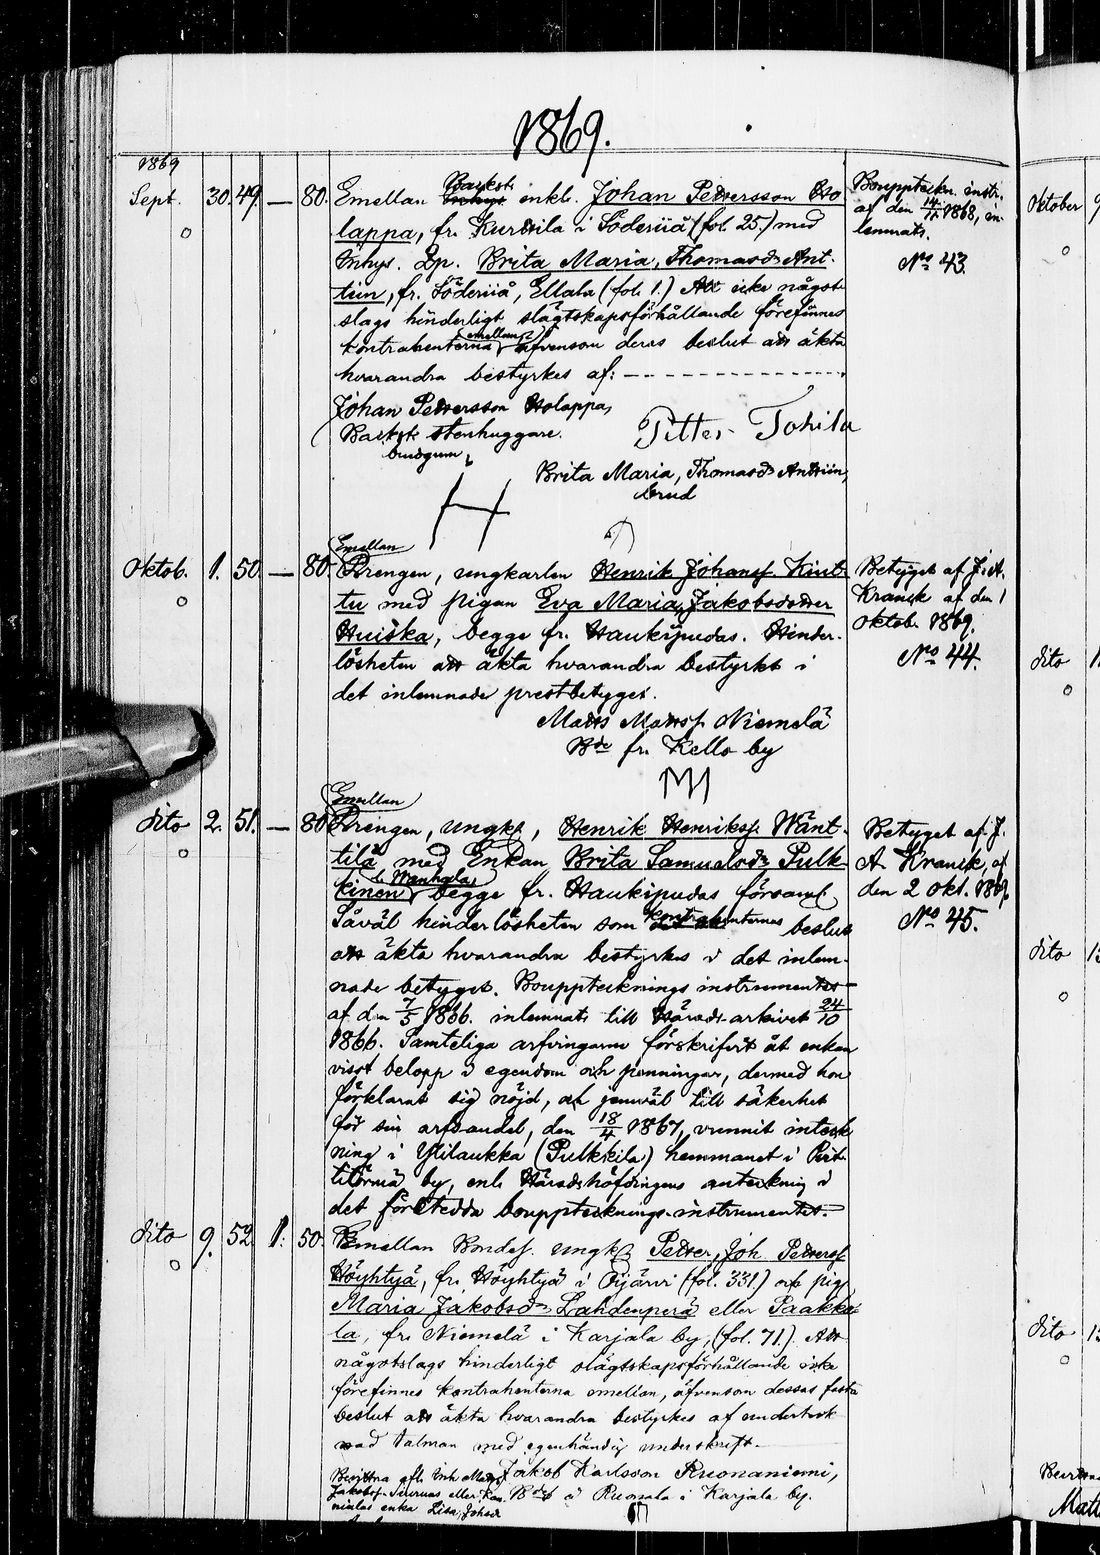 1869.
1869
Sept. 30. 49. — 80. Emellan Backst. enkl. Johan Pettersson Ho-
lappa, fr. Kurtila i Söderiiå (fol. 25.) med
Inhys. Dp. Brita Maria, Thomasdr Ant-
tiin, fr. Söderiiå, Ellala (fol. 1.) Att icke något
slags hinderligt slägtskapsförhållande förefinnes
kontrahenterna emellan, äfvensom deras beslut att äkta
hvarandra bestyrkes af:
Bouppteckn. instr.
af den 1868, in-
lemnats.
No 43.
Johan Pettersson Holappa,
Backst. stenhuggare.
brudgum
Petter Tohila
Brita Maria, Thomasdr Anttiin,
brud
Emellan
Oktob. 1. 50. — 80. Drengen, ungkarlen Henrik Johansf. Kint-
tu med pigan Eva Maria, Jakobsdotter
Huiska, begge fr. Haukipudas. Hinder-
lösheten att äkta hvarandra bestyrkt i
det inlemnade prestbetyget.
Betyget af J. A.
Kranck af den 1
Oktob. 1869.
No 44.
Matts Mattsf. Niemelä
Bde fr. Kello by
Emellan
dito 2. 51. — 80. Drengen, ungk., Henrik Henriksf. Wänt-
tilä med Enkan Brita Samuelsdr Pulk-
kinen l. Wanhala, begge fr. Haukipudas församl.
Såväl hinderlösheten som kontrahenternas beslut
att äkta hvarandra bestyrkes i det inlem-
nade betyget. Bouppteckningsinstrumentet
af den 7/5 1866. inlemnats till Härads-arkivet 24/10
1866. Samteliga arfvingarne förskrifvit åt enkan
visst belopp i egendom och penningar, dermed hon
förklarat sig nöjd, och jemväl till säkerhet
för sin arfsandel, den 18/4 1867, vunnit inteck-
ning i Ylilaukka (Pulkkila) hemmanet i
by, enl. Häradshöfdingens anteckning i
det företedda bouppteckningsinstrumentet.
Betyget af J.
A. Kranck, af
den 2 Okt. 1869.
No 45.
dito 9. 52. 1. 50. Emellan Bondes. ungk. Petter, Joh. Pettersf.
Höyhtyä, fr. Höyhtyä i Oijärvi (fol. 331.) och pig.
Maria Jakobsdr Lahdenperä eller Paakko-
la, fr. Niemelä i Karjala by, (fol. 71.). Att
någotslags hinderligt slägtskapsförhållande icke
förefinnes kontrahenterna emellan, äfvensom dessas fasta
beslut att äkta hvarandra bestyrkes af underteck-
nad talman med egenhändig underskrift.
Jakob Karlsson Ruonaniemi,
Bde å Ruonala i Karjala by.
enka Lisa, Johsdr
Oktober
dito
dito
dito